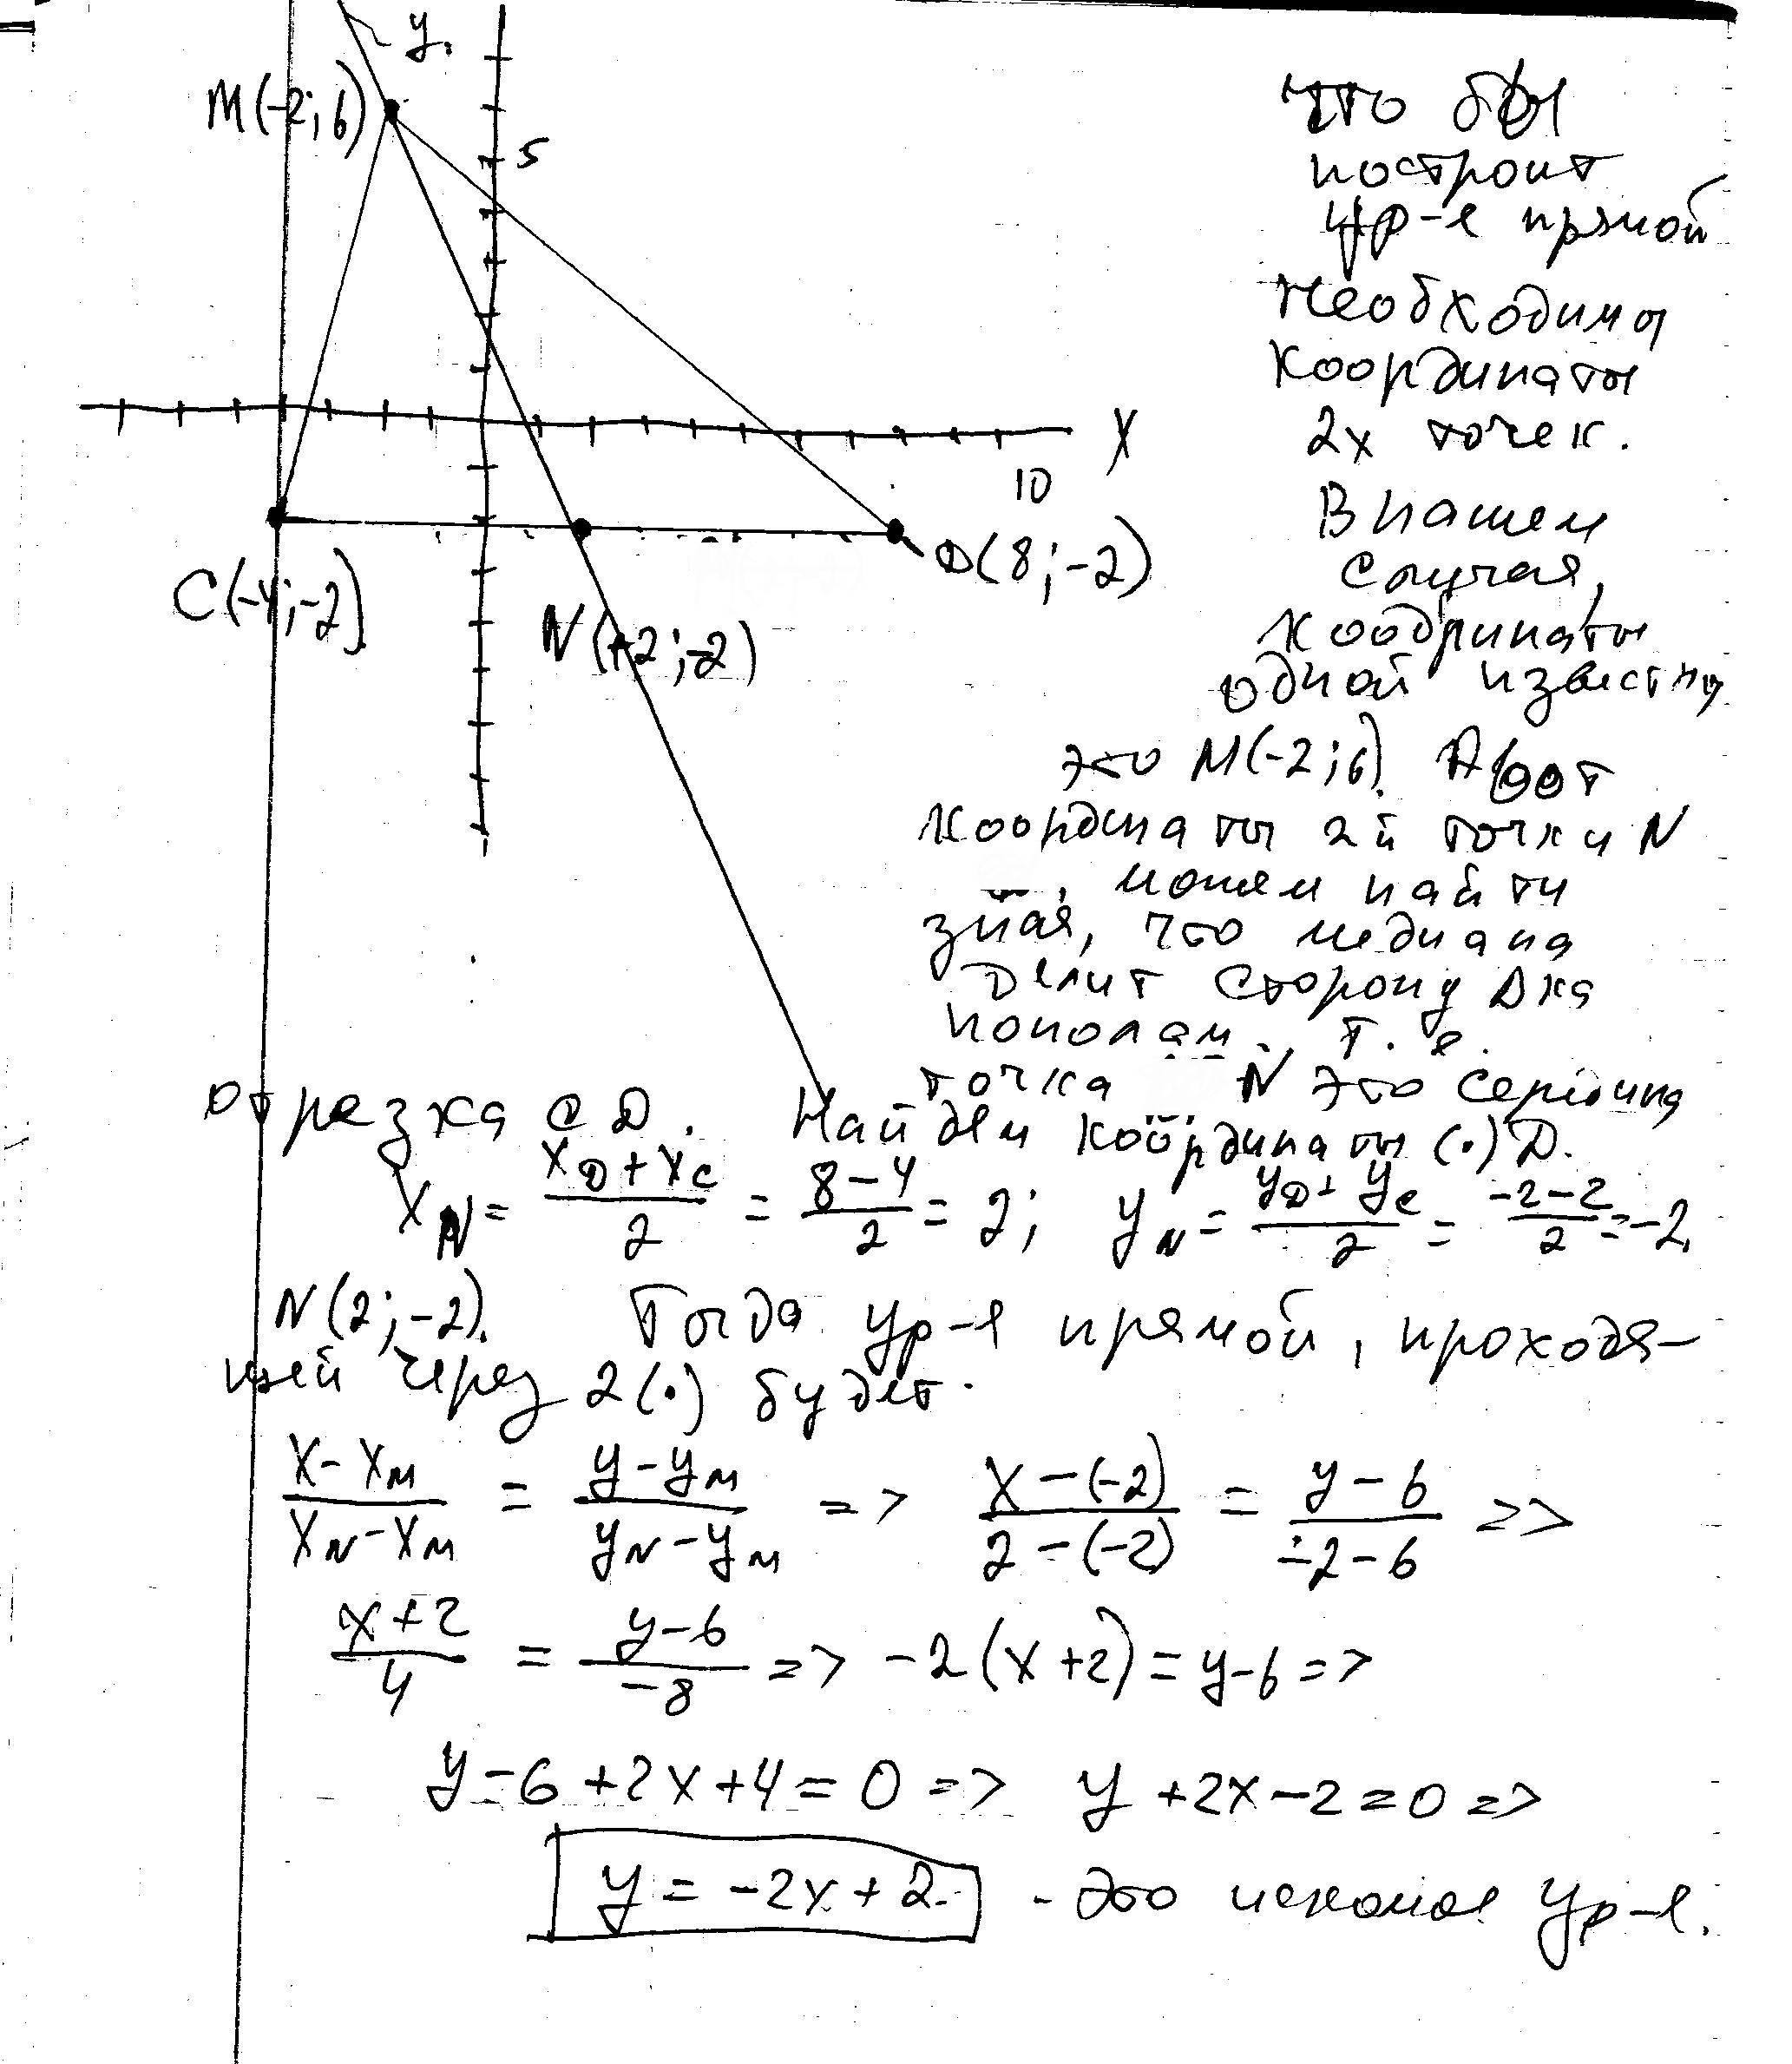 y.
M(-2; 6)
5
X
10
C(-4; -2)
N(+2; -2)
D(8; -2)
что бы
построит
ур-е прямой
необходимы
координаты
2х точек.
В нашем
случая,
коодринаты
одной известны
это M(-2; 6). А вот
координаты 2й точки N
, можем найти
зная, что медиана
делит сторону
пополам. Т. е.
точка N это середина
отрезка CD. Найдем координаты (•) D.
X_N = (X_D + X_C)/2 = (8 - 4)/2 = 2; y_N = (y_D + y_C)/2 = (-2 - 2)/2 = -2.
N(2; -2). Тогда ур-е прямой, проходя-
щей через 2(•) будет.
(X - X_M)/(X_N - X_M) = (y - y_M)/(y_N - y_M) => (X - (-2))/(2 - (-2)) = (y - 6)/(-2 - 6) =>
(X + 2)/4 = (y - 6)/(-8) => -2(X + 2) = y - 6 =>
y - 6 + 2X + 4 = 0 => y + 2X - 2 = 0 =>
y = -2X + 2. - это искомое ур-е.